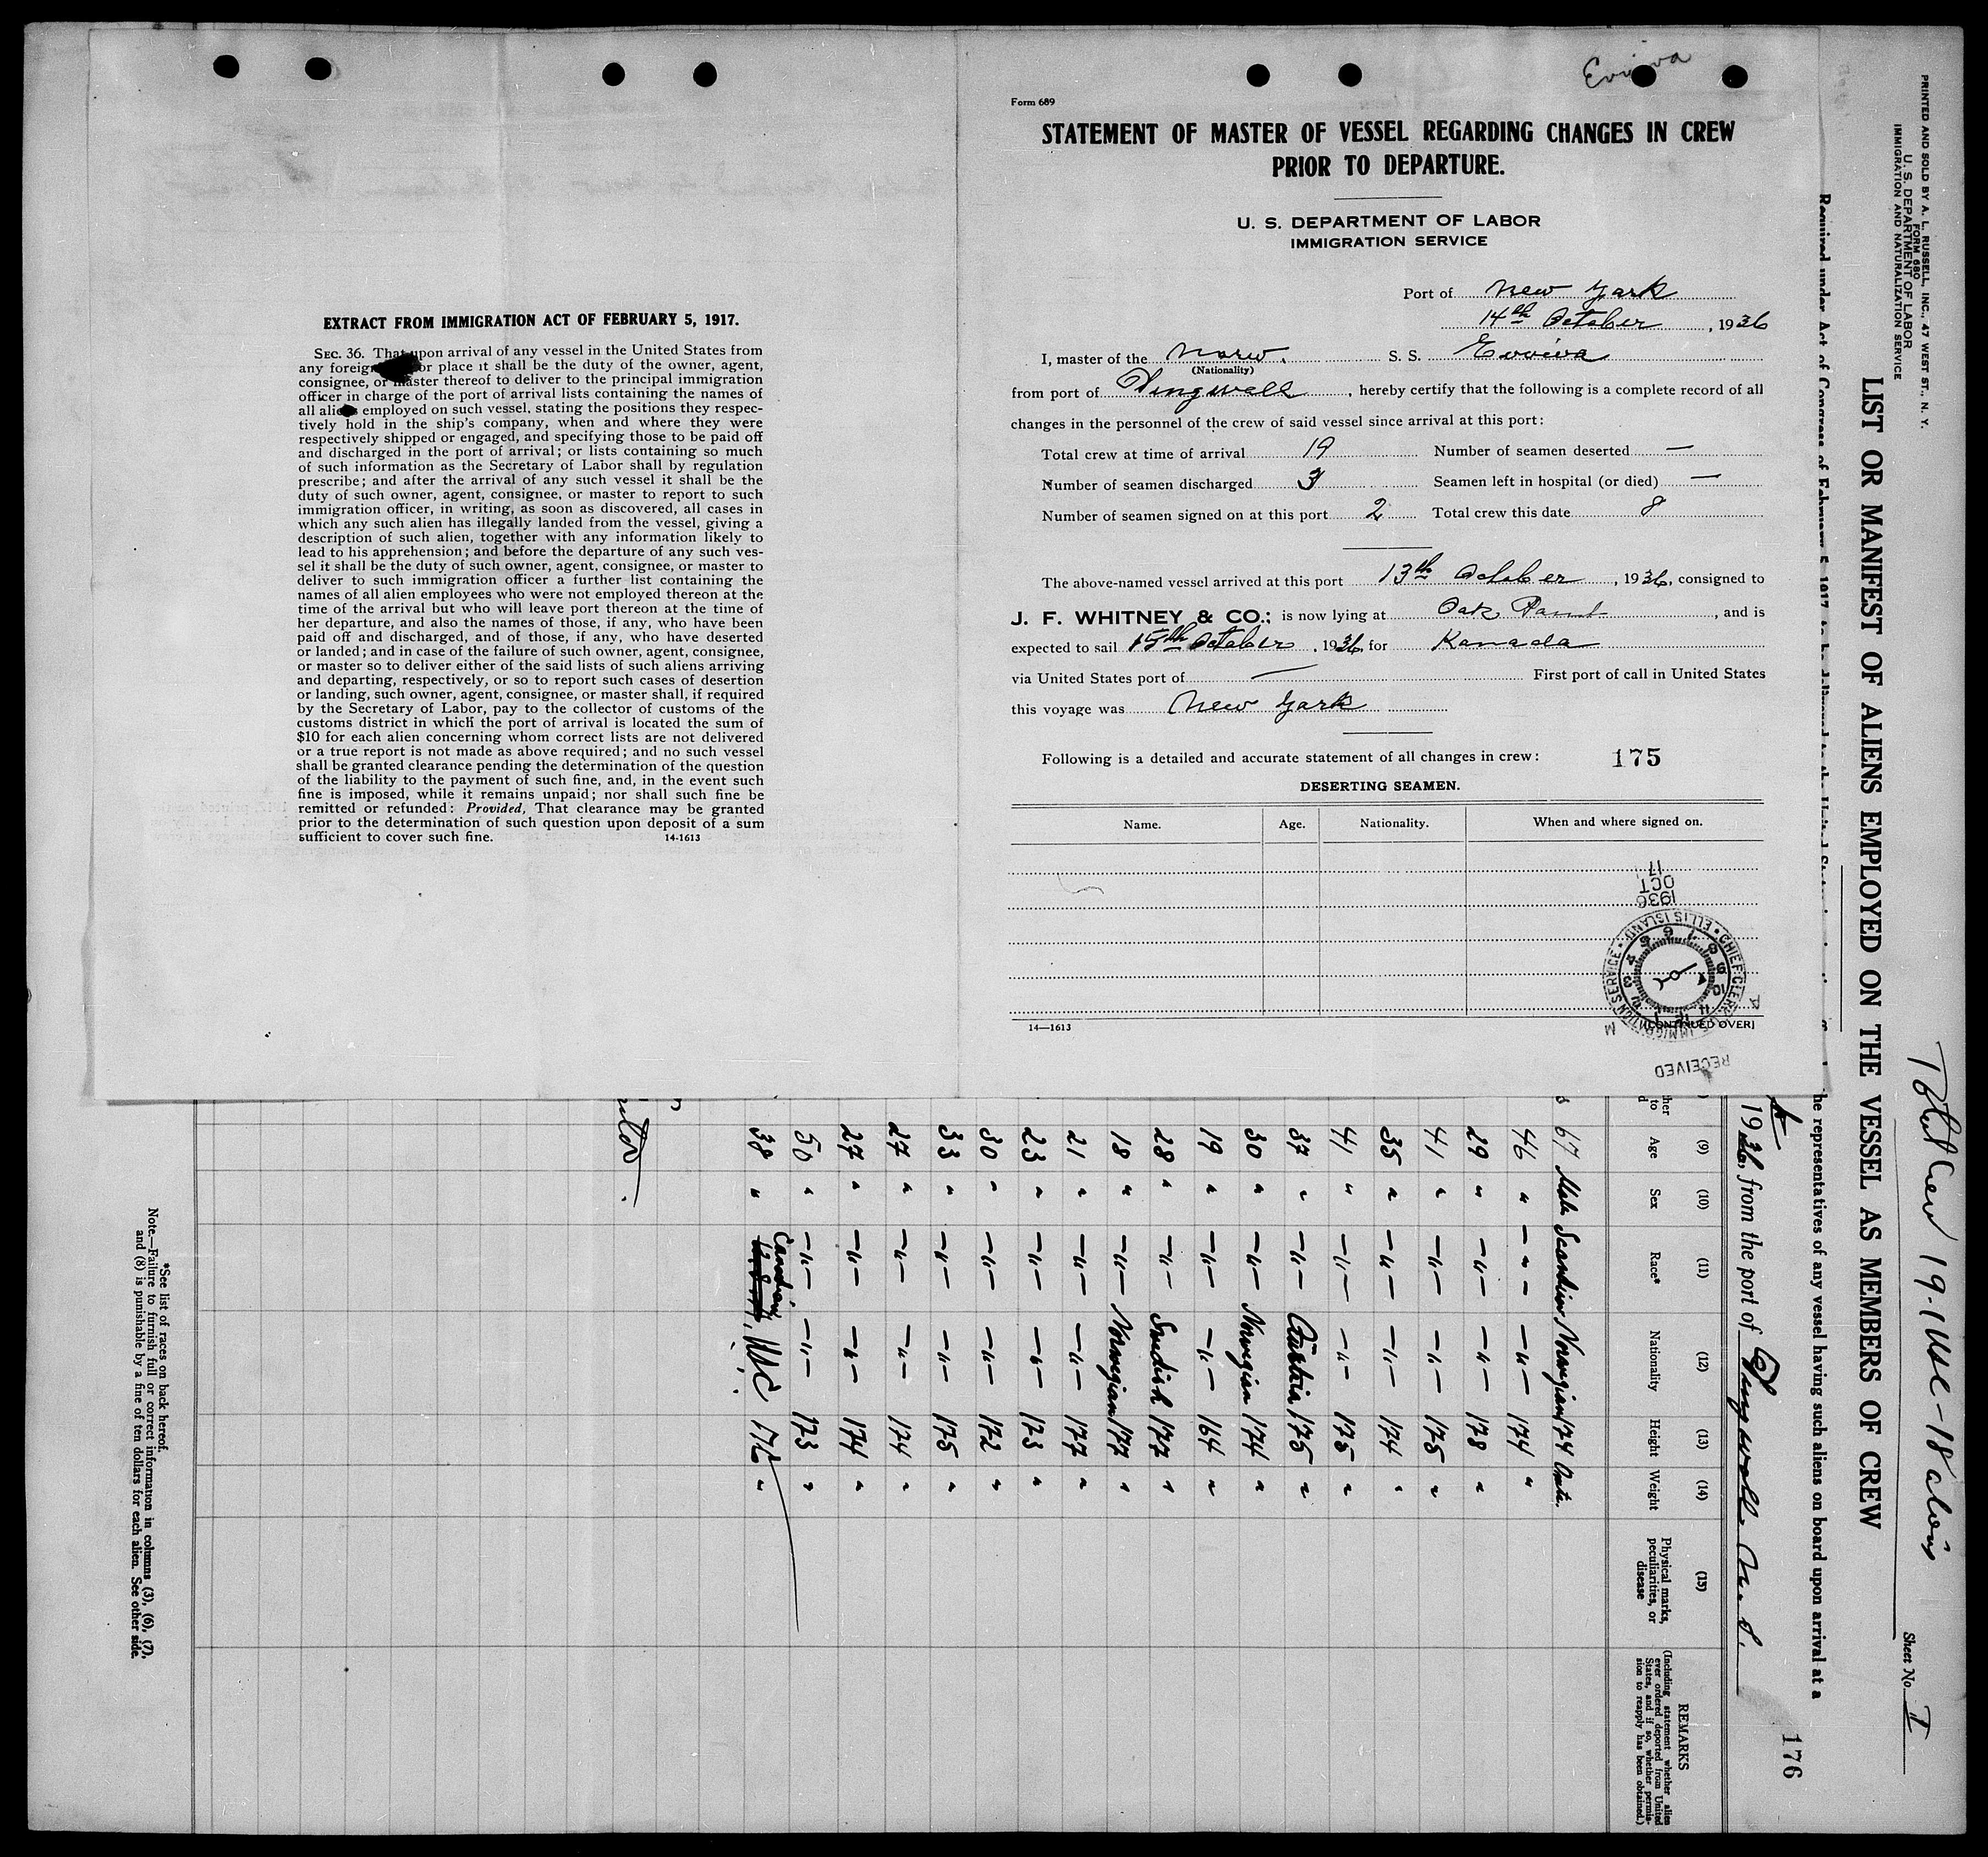 Evviva
Form 689
STATEMENT OF MASTER OF VESSEL REGARDING CHANGES IN CREW
PRIOR TO DEPARTURE.
U. S. DEPARTMENT OF LABOR
IMMIGRATION SERVICE
Port of New York
14th October, 1936
I, master of the Norw. S. S. Evviva
(Nationality)
from port of Dingwall, hereby certify that the following is a complete record of all
changes in the personnel of the crew of said vessel since arrival at this port:
Total crew at time of arrival 19 Number of seamen deserted —
Number of seamen discharged 3 Seamen left in hospital (or died) —
Number of seamen signed on at this port 2 Total crew this date 8
The above-named vessel arrived at this port 13th October, 1936, consigned to
J. F. WHITNEY & CO.; is now lying at Oak Point, and is
expected to sail 15th October, 1936, for Kanada
via United States port of — First port of call in United States
this voyage was New York
Following is a detailed and accurate statement of all changes in crew: 175
DESERTING SEAMEN.
Name. Age. Nationality. When and where signed on.
1936
OCT
17
CHIEF CLERK IMMIGRATION SERVICE • ELLIS ISLAND
RECEIVED
14—1613 [CONTINUED OVER]
EXTRACT FROM IMMIGRATION ACT OF FEBRUARY 5, 1917.
SEC. 36. That upon arrival of any vessel in the United States from
any foreign or place it shall be the duty of the owner, agent,
consignee, or master thereof to deliver to the principal immigration
officer in charge of the port of arrival lists containing the names of
all aliens employed on such vessel, stating the positions they respec-
tively hold in the ship's company, when and where they were
respectively shipped or engaged, and specifying those to be paid off
and discharged in the port of arrival; or lists containing so much
of such information as the Secretary of Labor shall by regulation
prescribe; and after the arrival of any such vessel it shall be the
duty of such owner, agent, consignee, or master to report to such
immigration officer, in writing, as soon as discovered, all cases in
which any such alien has illegally landed from the vessel, giving a
description of such alien, together with any information likely to
lead to his apprehension; and before the departure of any such ves-
sel it shall be the duty of such owner, agent, consignee, or master to
deliver to such immigration officer a further list containing the
names of all alien employees who were not employed thereon at the
time of the arrival but who will leave port thereon at the time of
her departure, and also the names of those, if any, who have been
paid off and discharged, and of those, if any, who have deserted
or landed; and in case of the failure of such owner, agent, consignee,
or master so to deliver either of the said lists of such aliens arriving
and departing, respectively, or so to report such cases of desertion
or landing, such owner, agent, consignee, or master shall, if required
by the Secretary of Labor, pay to the collector of customs of the
customs district in which the port of arrival is located the sum of
$10 for each alien concerning whom correct lists are not delivered
or a true report is not made as above required; and no such vessel
shall be granted clearance pending the determination of the question
of the liability to the payment of such fine, and, in the event such
fine is imposed, while it remains unpaid; nor shall such fine be
remitted or refunded: Provided, That clearance may be granted
prior to the determination of such question upon deposit of a sum
sufficient to cover such fine. 14-1613
PRINTED AND SOLD BY A. L. RUSSELL, INC., 47 WEST ST., N. Y.
FORM 680
U. S. DEPARTMENT OF LABOR
IMMIGRATION AND NATURALIZATION SERVICE
Total Crew 19 - 1 USC - 18 aliens
Sheet No. I
LIST OR MANIFEST OF ALIENS EMPLOYED ON THE VESSEL AS MEMBERS OF CREW
Required under Act of Congress of February 5, 1917, to be delivered to the United States
the representatives of any vessel having such aliens on board upon arrival at a
176
1936, from the port of Dingwall. N. S.
(9) (10) (11) (12) (13) (14) (15)
Age Sex Race* Nationality Height Weight Physical marks, peculiarities, or disease REMARKS
(Including statement whether alien
ever ordered deported from United
States, and if so, whether permis-
sion to reapply has been obtained.)
67 Male Scandinav Norwegian 174
46 " — " — — " — 174 "
29 " — " — — " — 178 "
41 " — " — — " — 175 "
35 " — " — — " — 174 "
41 " — " — — " — 175 "
37 " — " — Austria 175 "
30 " — " — Norwegian 174 "
19 " — " — — " — 164 "
28 " — " — Swedish 177 "
18 " — " — Norwegian 177 "
21 " — " — — " — 177 "
23 " — " — — " — 173 "
30 " — " — — " — 172 "
33 " — " — — " — 175 "
27 " — " — — " — 174 "
27 " — " — — " — 174 "
50 " — " — — " — 173 "
38 " Canadian USC 176 "
*See list of races on back hereof.
Note.—Failure to furnish full or correct information in columns (3), (6), (7),
and (8) is punishable by a fine of ten dollars for each alien. See other side.